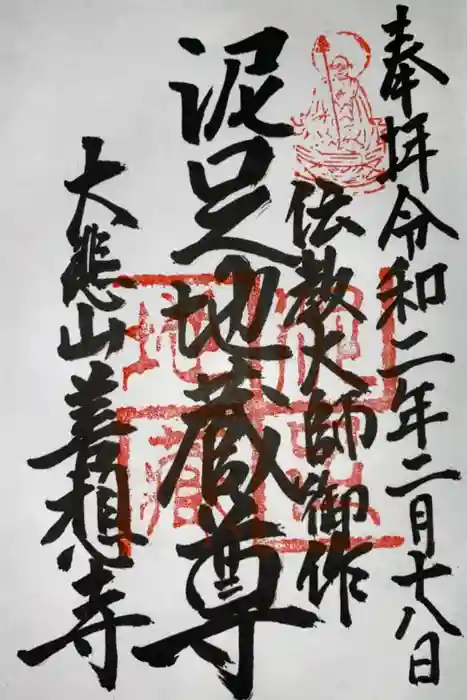 奉拝 令和二年二月十八日
伝教大師御作
泥足地蔵尊
大悲山善想寺
泥足地蔵